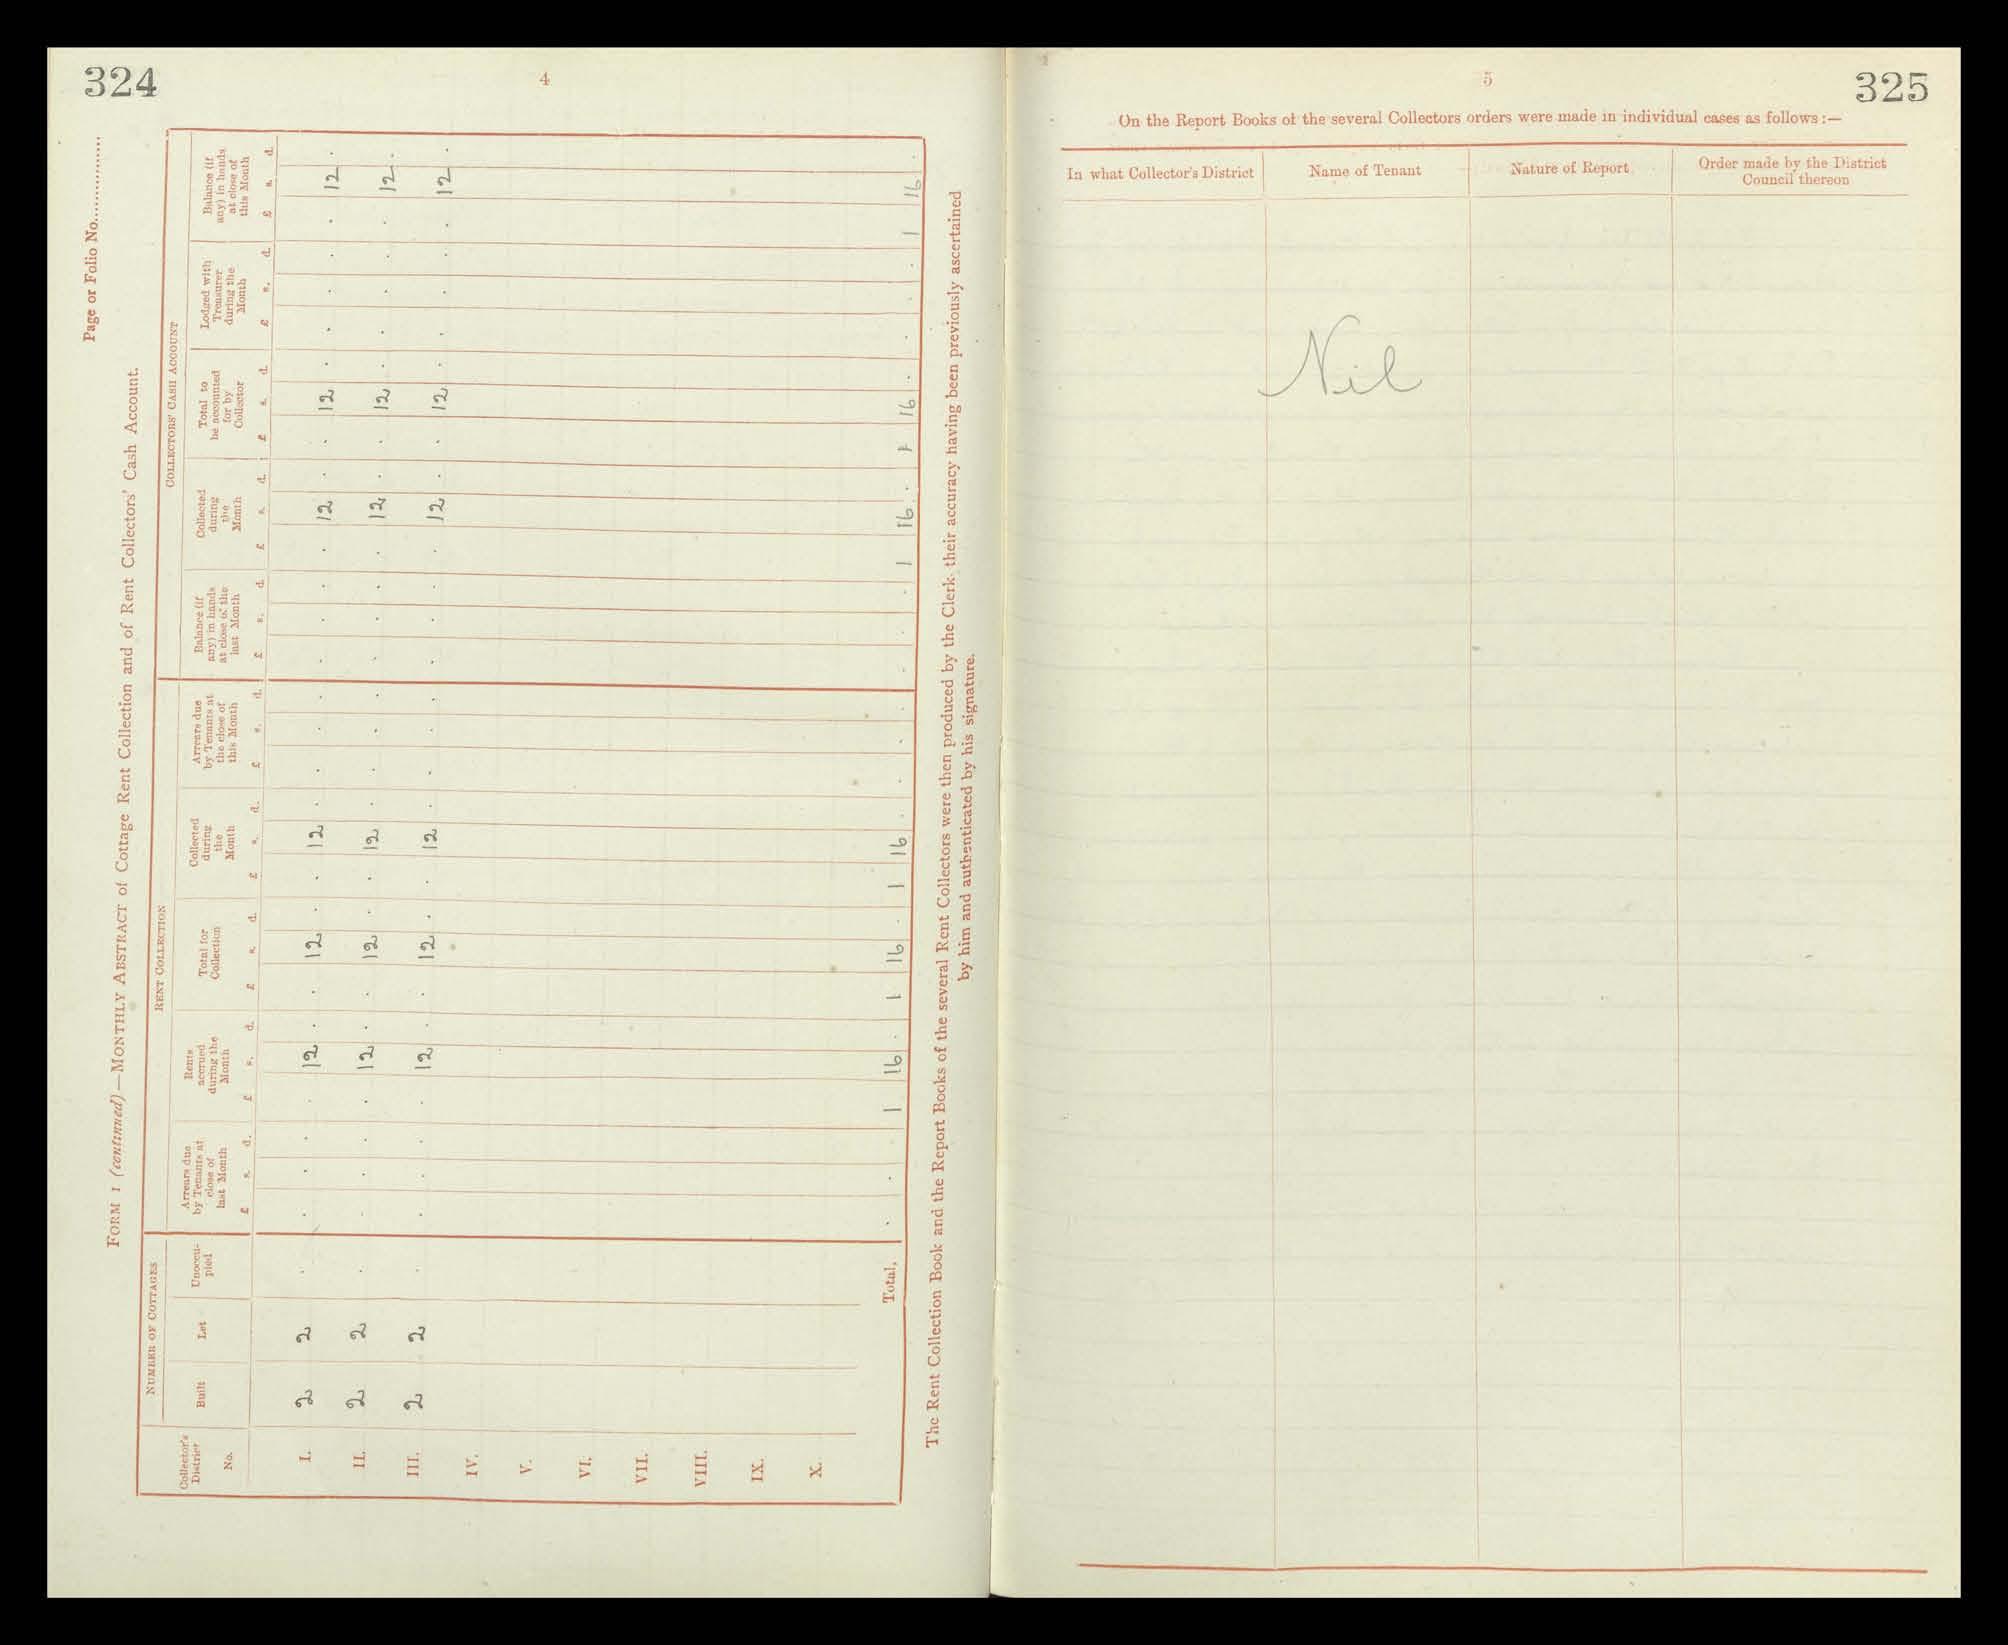 324
4
Page or Folio No..................
FORM 1 (continued)—MONTHLY ABSTRACT of Cottage Rent Collection and of Rent Collectors' Cash Account.
NUMBER OF COTTAGES
RENT COLLECTION
COLLECTORS' CASH ACCOUNT
Collector's
District
No.
Built
Let
Unoccu-
pied
Arrears due
by Tenants at
close of
last Month
Rents
accrued
during the
Month
Total for
Collection
Collected
during
the
Month
Arrears due
by Tenants at
the close of
this Month
Balance (if
any) in hands
at close of the
last Month
Collected
during
the
Month
Total to
be accounted
for by
Collector
Lodged with
Treasurer
during the
Month
Balance (if
any) in hands
at close of
this Month
£ s. d. £ s. d. £ s. d. £ s. d. £ s. d. £ s. d. £ s. d. £ s. d. £ s. d. £ s. d.
I. 2 2 . . . . . 12 . . 12 . . 12 . . . . . . . . 12 . . 12 . . . . . 12 .
II. 2 2 . . . . . 12 . . 12 . . 12 . . . . . . . . 12 . . 12 . . . . . 12 .
III. 2 2 . . . . . 12 . . 12 . . 12 . . . . . . . . 12 . . 12 . . . . . 12 .
IV.
V.
VI.
VII.
VIII.
IX.
X.
Total, . . . 1 16 . 1 16 . 1 16 . . . . . . . 1 16 . 1 16 . . . . 1 16 .
The Rent Collection Book and the Report Books of the several Rent Collectors were then produced by the Clerk, their accuracy having been previously ascertained
by him and authenticated by his signature.
5
325
On the Report Books of the several Collectors orders were made in individual cases as follows:—
In what Collector's District
Name of Tenant
Nature of Report
Order made by the District
Council thereon
Nil